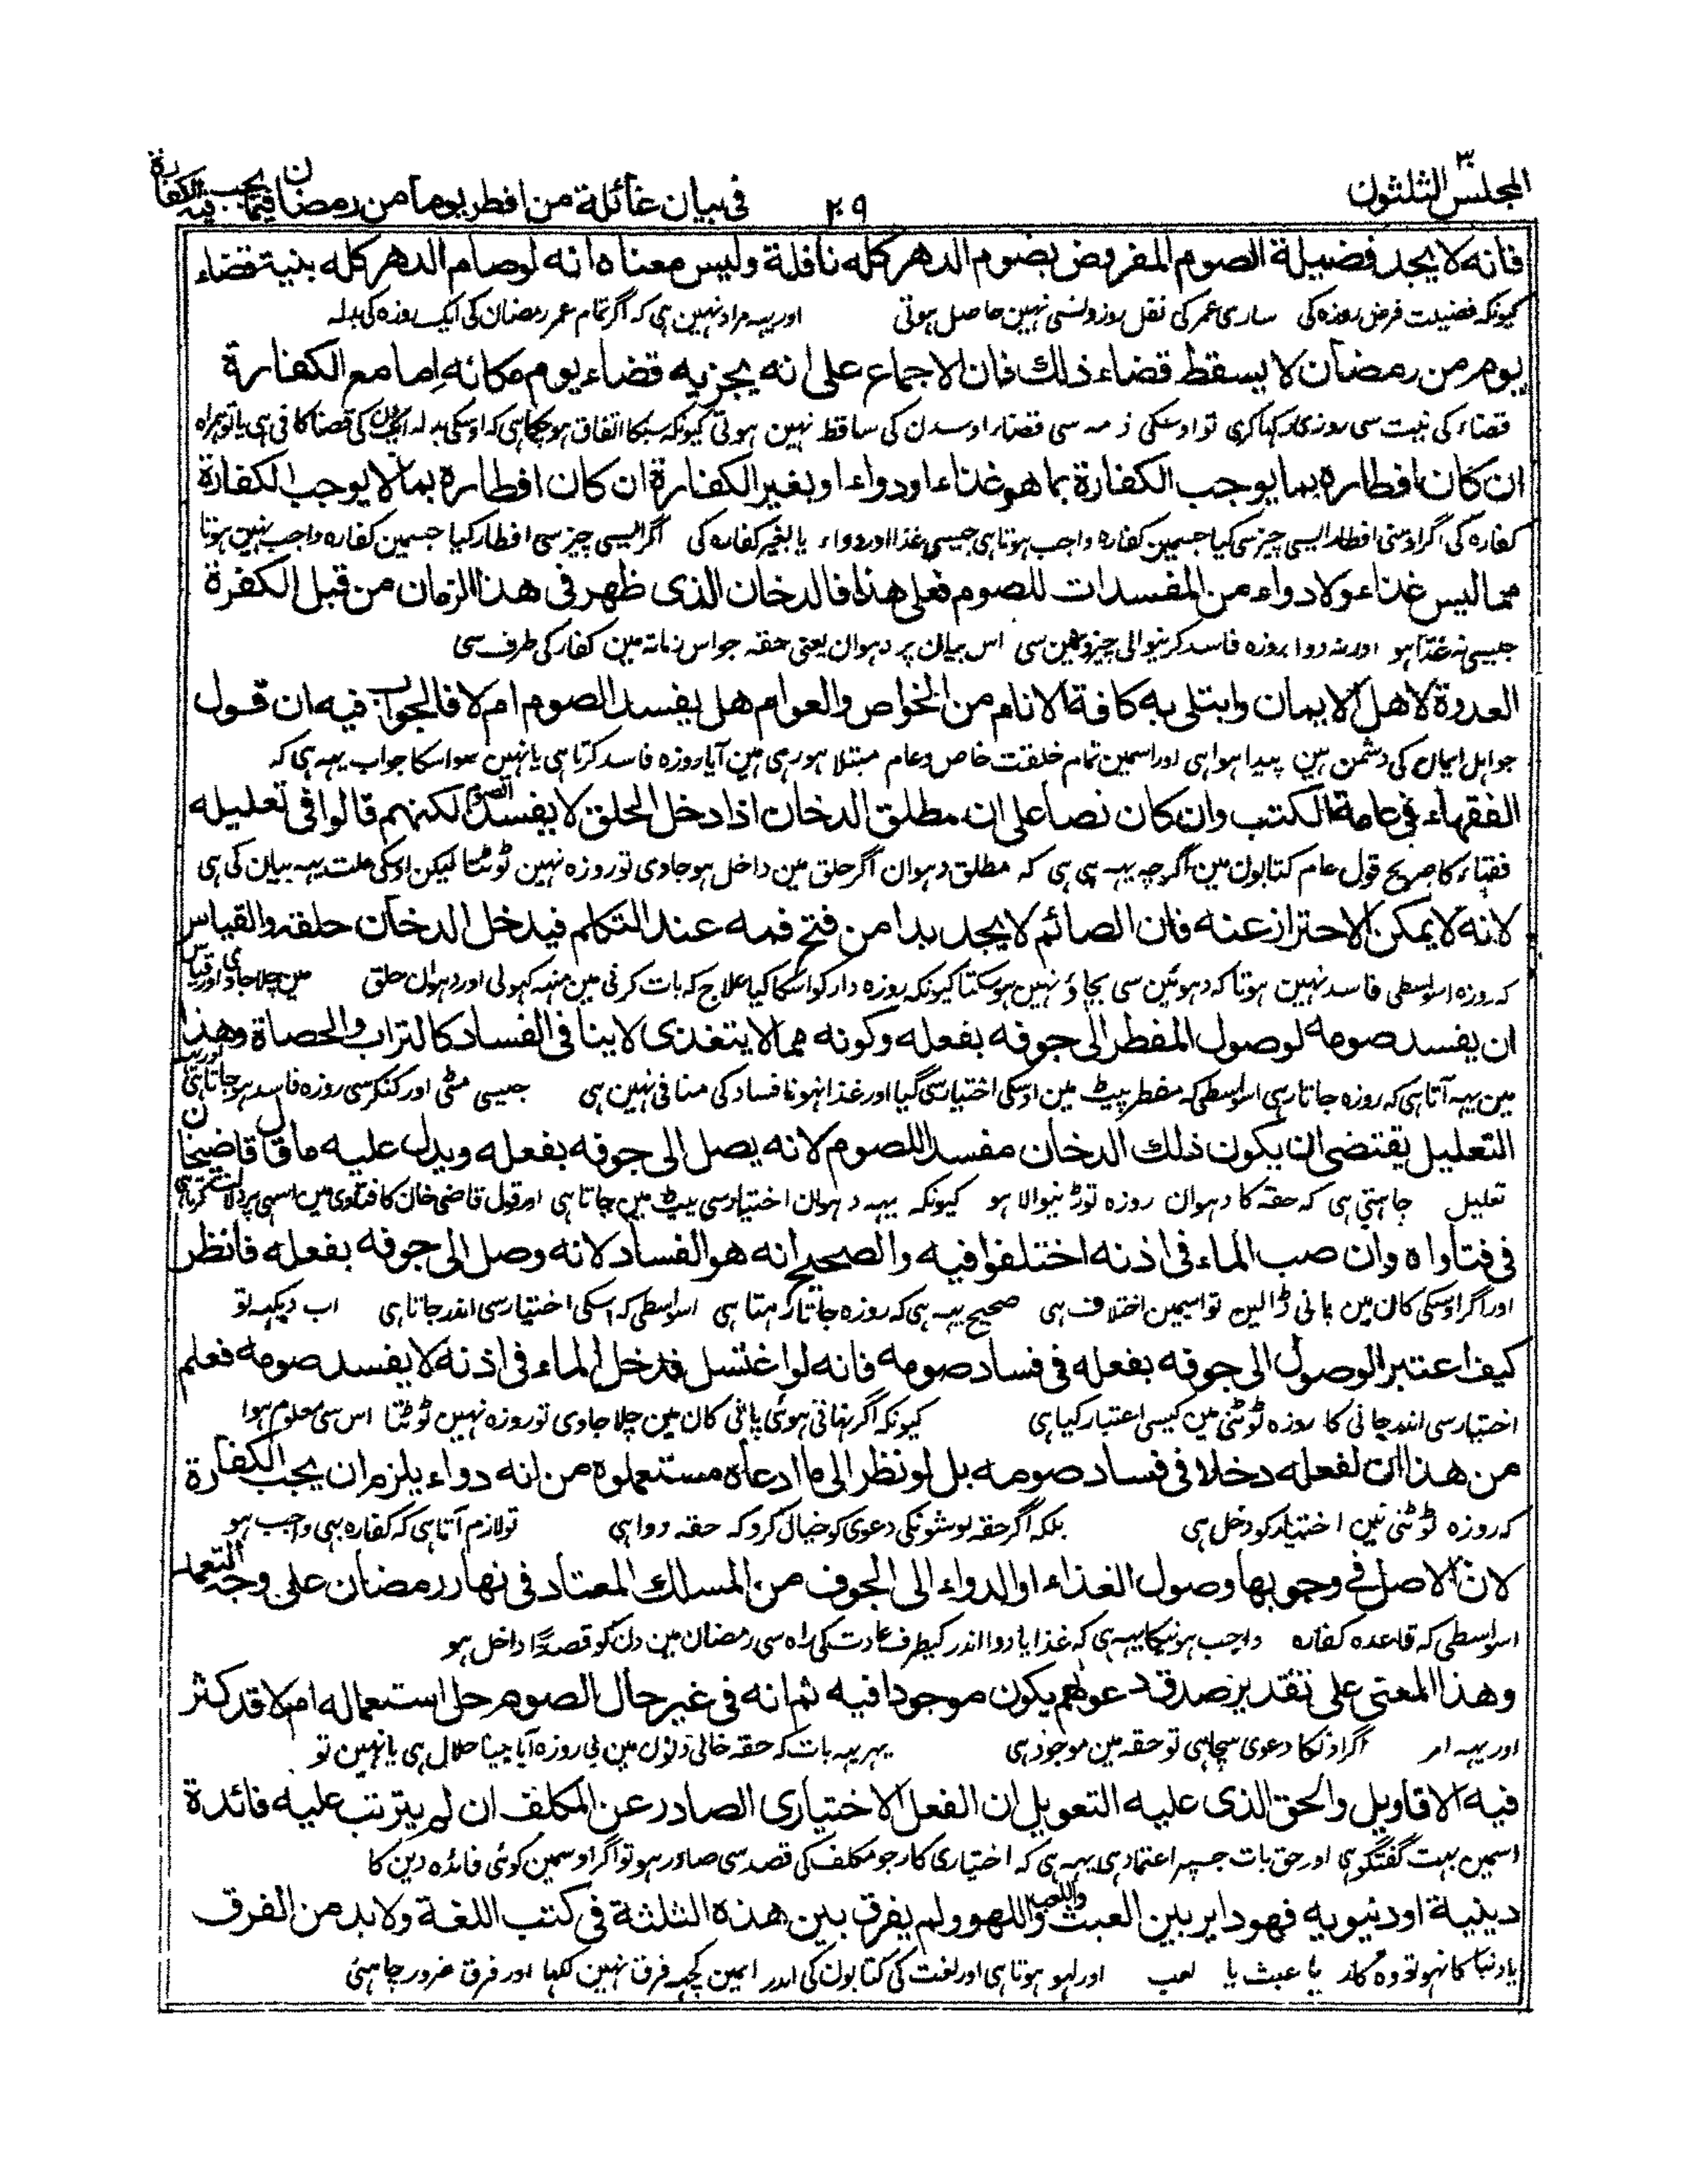 المجلس الثلثون ٣٠
٢٠٩
فی بیان غائلة من افطر یوما من رمضان فیما یجب فیه الکفارة
فانه لا یجد فضیلة الصوم المفروض بصوم الدهر کله نافلة ولیس معناه انه لو صام الدهر کله بنیة قضاء
کیونکہ فضیلت فرض روزہ کی ساری عمر کی نفل روزونسی نہین حاصل ہوتی اور یہہ مراد نہین ہی کہ اگر تمام عمر رمضان کی ایک روزہ کی بدلہ
یوم من رمضان لا یسقط قضاء ذلك فان الاجماع علی انه یجزیه قضاء یوم مکانه اما مع الکفارة
قضاء کی نیت سی روزی رکہا کری تو اوسکی ذمہ سی قضاء اوسدن کی ساقط نہین ہوتی کیونکہ سبکا اتفاق ہو چکا ہی کہ اوسکی بدلہ ایکدن کی قضا کافی ہی یا تو ہمراہ
ان کان افطاره بما یوجب الکفارة بما هو غذاء او دواء او بغیر الکفارة ان کان افطاره بما لا یوجب الکفارة
کفارہ کی اگر اوسنی افطار ایسی چیز سی کیا جسمین کفارہ واجب ہوتا ہی جیسی غذا اور دواء یا بغیر کفارہ کی اگر ایسی چیز سی افطار کیا جسمین کفارہ واجب نہین ہوتا
مما لیس غذاء ولا دواء من المفسدات للصوم فعلی هذا فالدخان الذی ظهر فی هذا الزمان من قبل الکفرة
جیسی نہ غذا ہو اور نہ دوا روزہ فاسد کرنیوالی چیزونمین سی اس بیان پر دہوان یعنی حقہ جو اس زمانہ مین کفار کی طرف سی
العدوة لاهل الایمان وابتلی به کافة الانام من الخواص والعوام هل یفسد الصوم ام لا فالجواب فیه ان قول
جو اہل ایمان کی دشمن ہین پیدا ہوا ہی اور اسمین تمام خلقت خاص و عام مبتلا ہو رہی ہین آیا روزہ فاسد کرتا ہی یا نہین سو اسکا جواب یہہ ہی کہ
الفقهاء فی عامة الکتب وان کان نصا علی ان مطلق الدخان اذا دخل الحلق لا یفسد الصوم لکنهم قالوا فی تعلیله
فقہاء کا صریح قول عام کتابون مین اگرچہ یہہ ہی ہی کہ مطلق دہوان اگر حلق مین داخل ہو جاوی تو روزہ نہین ٹوٹتا لیکن اوسکی علت یہہ بیان کی ہی
لانه لا یمکن الاحتراز عنه فان الصائم لا یجد بدا من فتح فمه عند التکلم فیدخل الدخان حلقه والقیاس
کہ روزہ اسواسطی فاسد نہین ہوتا کہ دہوئین سی بچاؤ نہین ہو سکتا کیونکہ روزہ دار کو اسکا کیا علاج کہ بات کرنی مین منہہ کہولی اور دہوان حلق مین چلا جاوی اور قیاس
ان یفسد صومه لوصول المفطر الی جوفه بفعله وکونه مما لا یتغذی لا ینافی الفساد کالتراب والحصاة وهذا
مین یہہ آتا ہی کہ روزہ جاتا رہی اسواسطی کہ مفطر پیٹ مین اوسکی اختیار سی گیا اور غذا نہونا فساد کی منافی نہین ہی جیسی مٹی اور کنکر سی روزہ فاسد ہو جاتا ہی اور یہہ
التعلیل یقتضی ان یکون ذلك الدخان مفسدا للصوم لانه یصل الی جوفه بفعله ویدل علیه ما قال قاضیخان
تعلیل چاہتی ہی کہ حقہ کا دہوان روزہ توڑنیوالا ہو کیونکہ یہہ دہوان اختیار سی پیٹ مین جاتا ہی اور قول قاضی خان کا فتاوی مین اسہی پر دلالت کرتا ہی
فی فتاواه وان صب الماء فی اذنه اختلفوا فیه والصحیح انه هو الفساد لانه وصل الی جوفه بفعله فانظر
اور اگر اوسکی کان مین پانی ڈالین تو اسمین اختلاف ہی صحیح یہہ ہی کہ روزہ جاتا رہتا ہی اسواسطی کہ اسکی اختیار سی اندر جاتا ہی اب دیکہہ تو
کیف اعتبر الوصول الی جوفه بفعله فی فساد صومه فانه لو اغتسل فدخل الماء فی اذنه لا یفسد صومه فعلم
اختیار سی اندر جانی کا روزہ ٹوٹنی مین کیسی اعتبار کیا ہی کیونکہ اگر نہاتی ہوئی پانی کان مین چلا جاوی تو روزہ نہین ٹوٹتا اس سی معلوم ہوا
من هذا ان لفعله دخلا فی فساد صومه بل لو نظر الی ما ادعاه مستعملوه من انه دواء یلزم ان یجب الکفارة
کہ روزہ ٹوٹنی مین اختیار کو دخل ہی بلکہ اگر حقہ نوشونکی دعوی کو خیال کرو کہ حقہ دوا ہی تو لازم آتا ہی کہ کفارہ بہی واجب ہو
لان الاصل فی وجوبها وصول الغذاء او الدواء الی الجوف من المسلك المعتاد فی نهار رمضان علی وجه التعمد
اسواسطی کہ قاعدہ کفارہ واجب ہونیکا یہہ ہی کہ غذا یا دوا اندر کیطرف عادت کی راہ سی رمضان مین دن کو قصدًا داخل ہو
وهذا المعنی علی تقدیر صدق دعوٰهم یکون موجودا فیه ثم انه فی غیر حال الصوم حل استعماله ام لا قد کثر
اور یہہ امر اگر اونکا دعوی سچا ہی تو حقہ مین موجود ہی پہر یہہ بات کہ حقہ خالی دنون مین بی روزہ آیا پینا حلال ہی یا نہین تو
فیه الاقاویل والحق الذی علیه التعویل ان الفعل الاختیاری الصادر عن المکلف ان لم یترتب علیه فائدة
اسمین بہت گفتگو ہی اور حق بات جسپر اعتماد ہی یہہ ہی کہ اختیاری کار جو مکلف کی قصد سی صادر ہو تو اگر اوسمین کوئی فائدہ دین کا
دینیة او دنیویه فهو دایر بین العبث واللعب واللهو ولم یفرق بین هذه الثلثة فی کتب اللغة ولا بد من الفرق
یا دنیا کا نہو تو وہ کار یا عبث یا لعب اور لہو ہوتا ہی اور لغت کی کتابون کی اندر انمین کچہہ فرق نہین لکہا اور فرق ضرور چاہئی